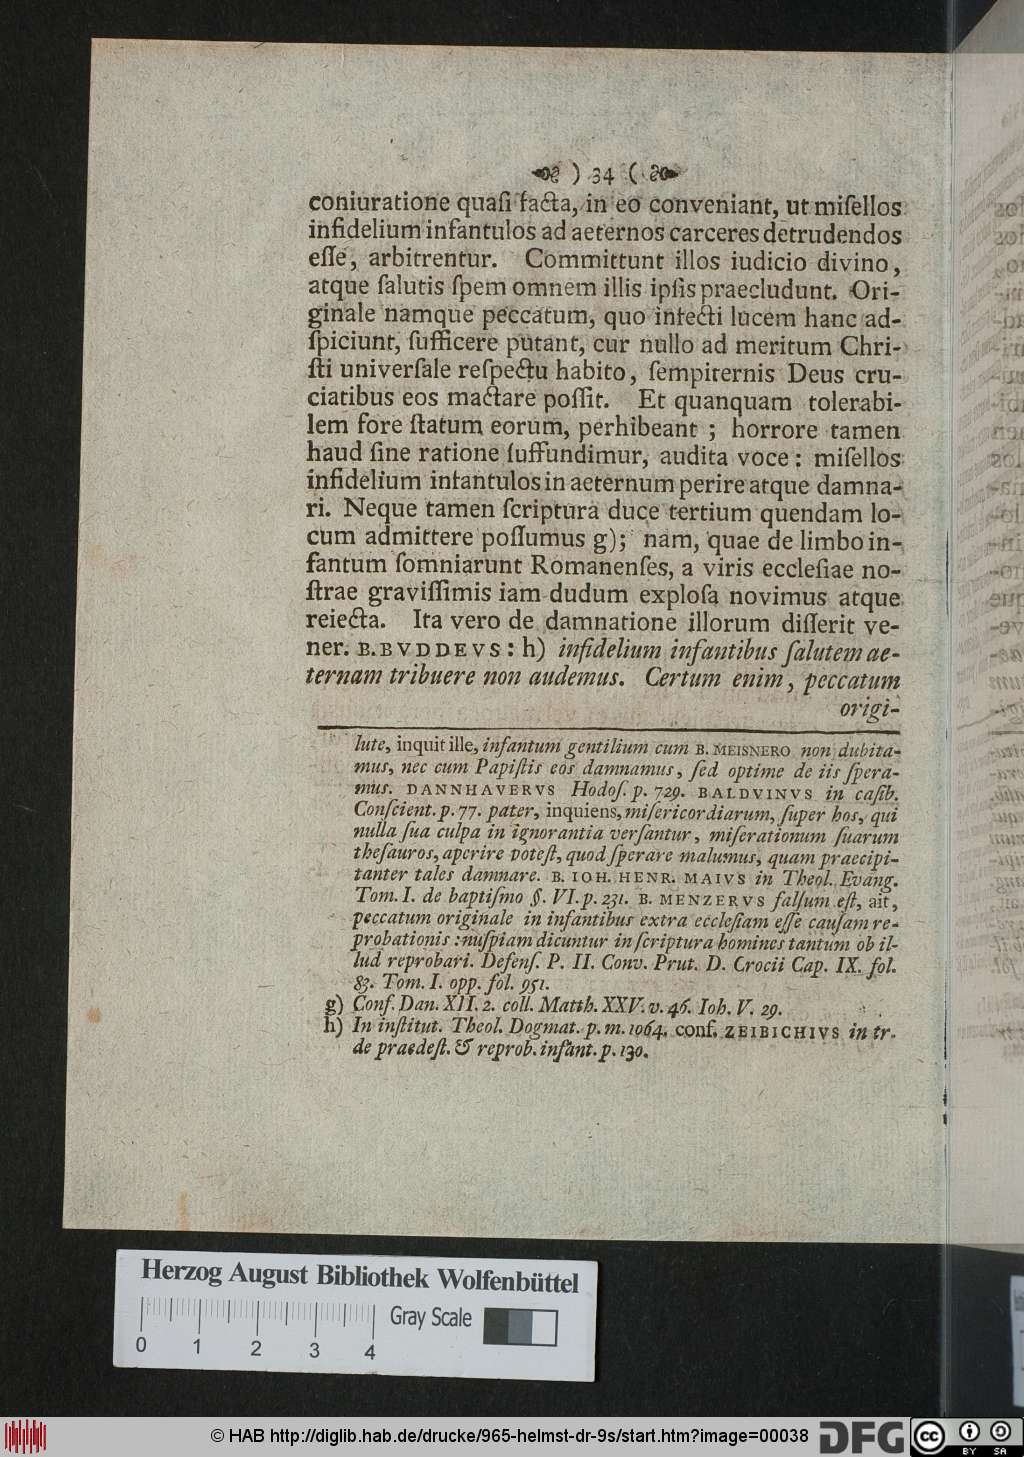 ) 34 (
coniuratione quaſi facta, in eo conveniant, ut miſellos
infidelium infantulos ad aeternos carceres detrudendos
eſſe, arbitrentur. Committunt illos iudicio divino,
atque ſalutis ſpem omnem illis ipſis praecludunt. Ori-
ginale namque peccatum, quo infecti lucem hanc ad-
ſpiciunt, ſufficere putant, cur nullo ad meritum Chri-
ſti univerſale reſpectu habito, ſempiternis Deus cru-
ciatibus eos mactare poſſit. Et quanquam tolerabi-
lem fore ſtatum eorum, perhibeant ; horrore tamen
haud ſine ratione ſuffundimur, audita voce : miſellos
infidelium infantulos in aeternum perire atque damna-
ri. Neque tamen ſcriptura duce tertium quendam lo-
cum admittere poſſumus g); nam, quae de limbo in-
fantum ſomniarunt Romanenſes, a viris eccleſiae no-
ſtrae graviſſimis iam dudum exploſa novimus atque
reiecta. Ita vero de damnatione illorum diſſerit ve-
ner. B. BVDDEVS : h) infidelium infantibus ſalutem ae-
ternam tribuere non audemus. Certum enim, peccatum
origi-
lute, inquit ille, infantum gentilium cum B. MEISNERO non dubita-
mus, nec cum Papiſtis eos damnamus, ſed optime de iis ſpera-
mus. DANNHAVERVS Hodoſ. p. 729. BALDVINVS in caſib.
Conſcient. p. 77. pater, inquiens, miſericordiarum, ſuper hos, qui
nulla ſua culpa in ignorantia verſantur, miſerationum ſuarum
theſauros, aperire poteſt, quod ſperare malumus, quam praecipi-
tanter tales damnare. B. IOH. HENR. MAIVS in Theol. Evang.
Tom. I. de baptiſmo §. VI. p. 231. B. MENZERVS falſum eſt, ait,
peccatum originale in infantibus extra eccleſiam eſſe cauſam re-
probationis : nuſpiam dicuntur in ſcriptura homines tantum ob il-
lud reprobari. Defenſ. P. II. Conv. Prut. D. Crocii Cap. IX. fol.
83. Tom. I. opp. fol. 951.
g) Conf. Dan. XII. 2. coll. Matth. XXV. v. 46. Ioh. V. 29.
h) In inſtitut. Theol. Dogmat. p. m. 1064. conf. ZEIBICHIVS in tr.
de praedeſt. & reprob. infant. p. 130.
Herzog August Bibliothek Wolfenbüttel
Gray Scale
0 1 2 3 4
© HAB http://diglib.hab.de/drucke/965-helmst-dr-9s/start.htm?image=00038
DFG
cc BY SA